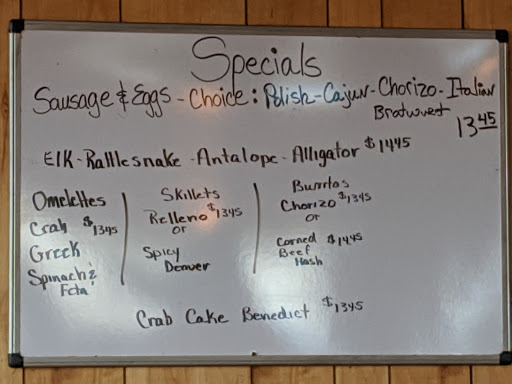 Specials
Sausage & Eggs - Choice: Polish - Cajun - Chorizo - Italian
Bratwurst
13 45
Elk - Rattlesnake - Antalope - Alligator $1445
Omelettes
Crab $1345
Greek
Spinach &
Feta
Skillets
Relleno $1345
or
Spicy
Denver
Burritos
Chorizo $1345
or
Corned $1445
Beef
Hash
Crab Cake Benedict $1345